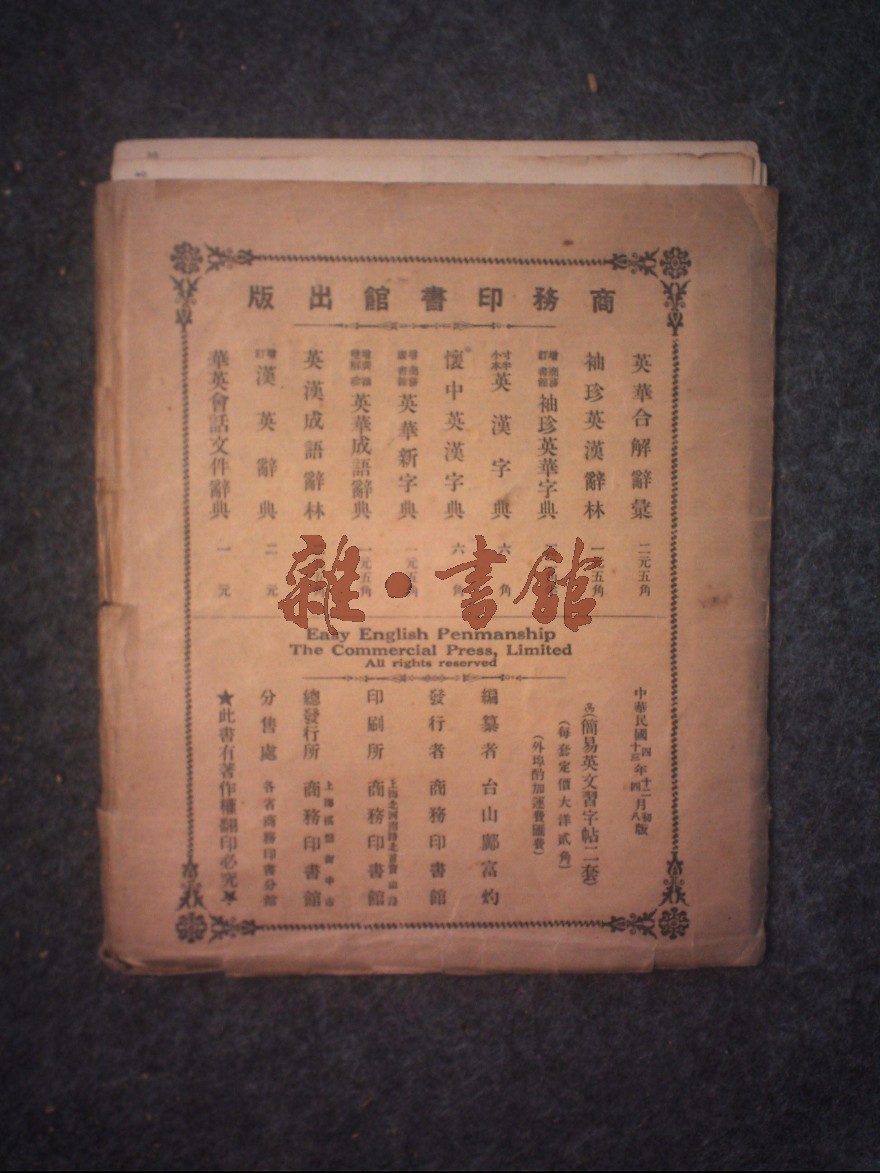 商務印書館出版
英華合解辭彙 二元五角
袖珍英漢辭林 一元五角
袖珍英華字典
寸半小本 英漢字典 六角
懷中英漢字典 六角
英華新字典 一元五角
英華成語辭典 一元五角
英漢成語辭林
增訂 漢英辭典 二元
華英會話文件辭典 一元
雜·書館
Easy English Penmanship
The Commercial Press, Limited
All rights reserved
中華民國四年十二月初版
十三 四 八
(簡易英文習字帖二套)
(每套定價大洋貳角)
(外埠酌加運費匯費)
編纂者 台山鄺富灼
發行者 商務印書館
印刷所 商務印書館
總發行所 商務印書館
分售處 各省商務印書分館
★此書有著作權翻印必究★